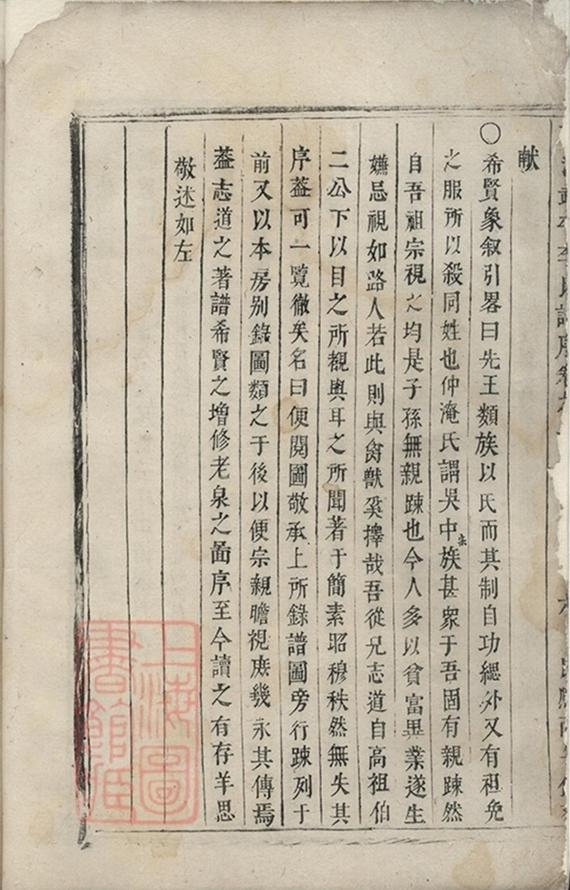 獻
○希賢象叙引畧曰先王類族以氏而其制自功緦外又有袒免
之服所以殺同姓也仲淹氏謂吳中族甚衆于吾固有親踈然
自吾祖宗視之均是子孫無親踈也今人多以貧富異業遂生
嫌忌視如路人若此則與禽獸奚擇哉吾從兄志道自高祖伯
二公下以目之所覩與耳之所聞著于簡素昭穆秩然無失其
序葢可一覽徹矣名曰便閱圖敬承上所錄譜圖旁行踈列于
前又以本房别錄圖類之于後以便宗親瞻視庶幾永其傳焉
葢志道之著譜希賢之增修老泉之啚序至今讀之有存羊思
敬述如左
上海圖
書館藏